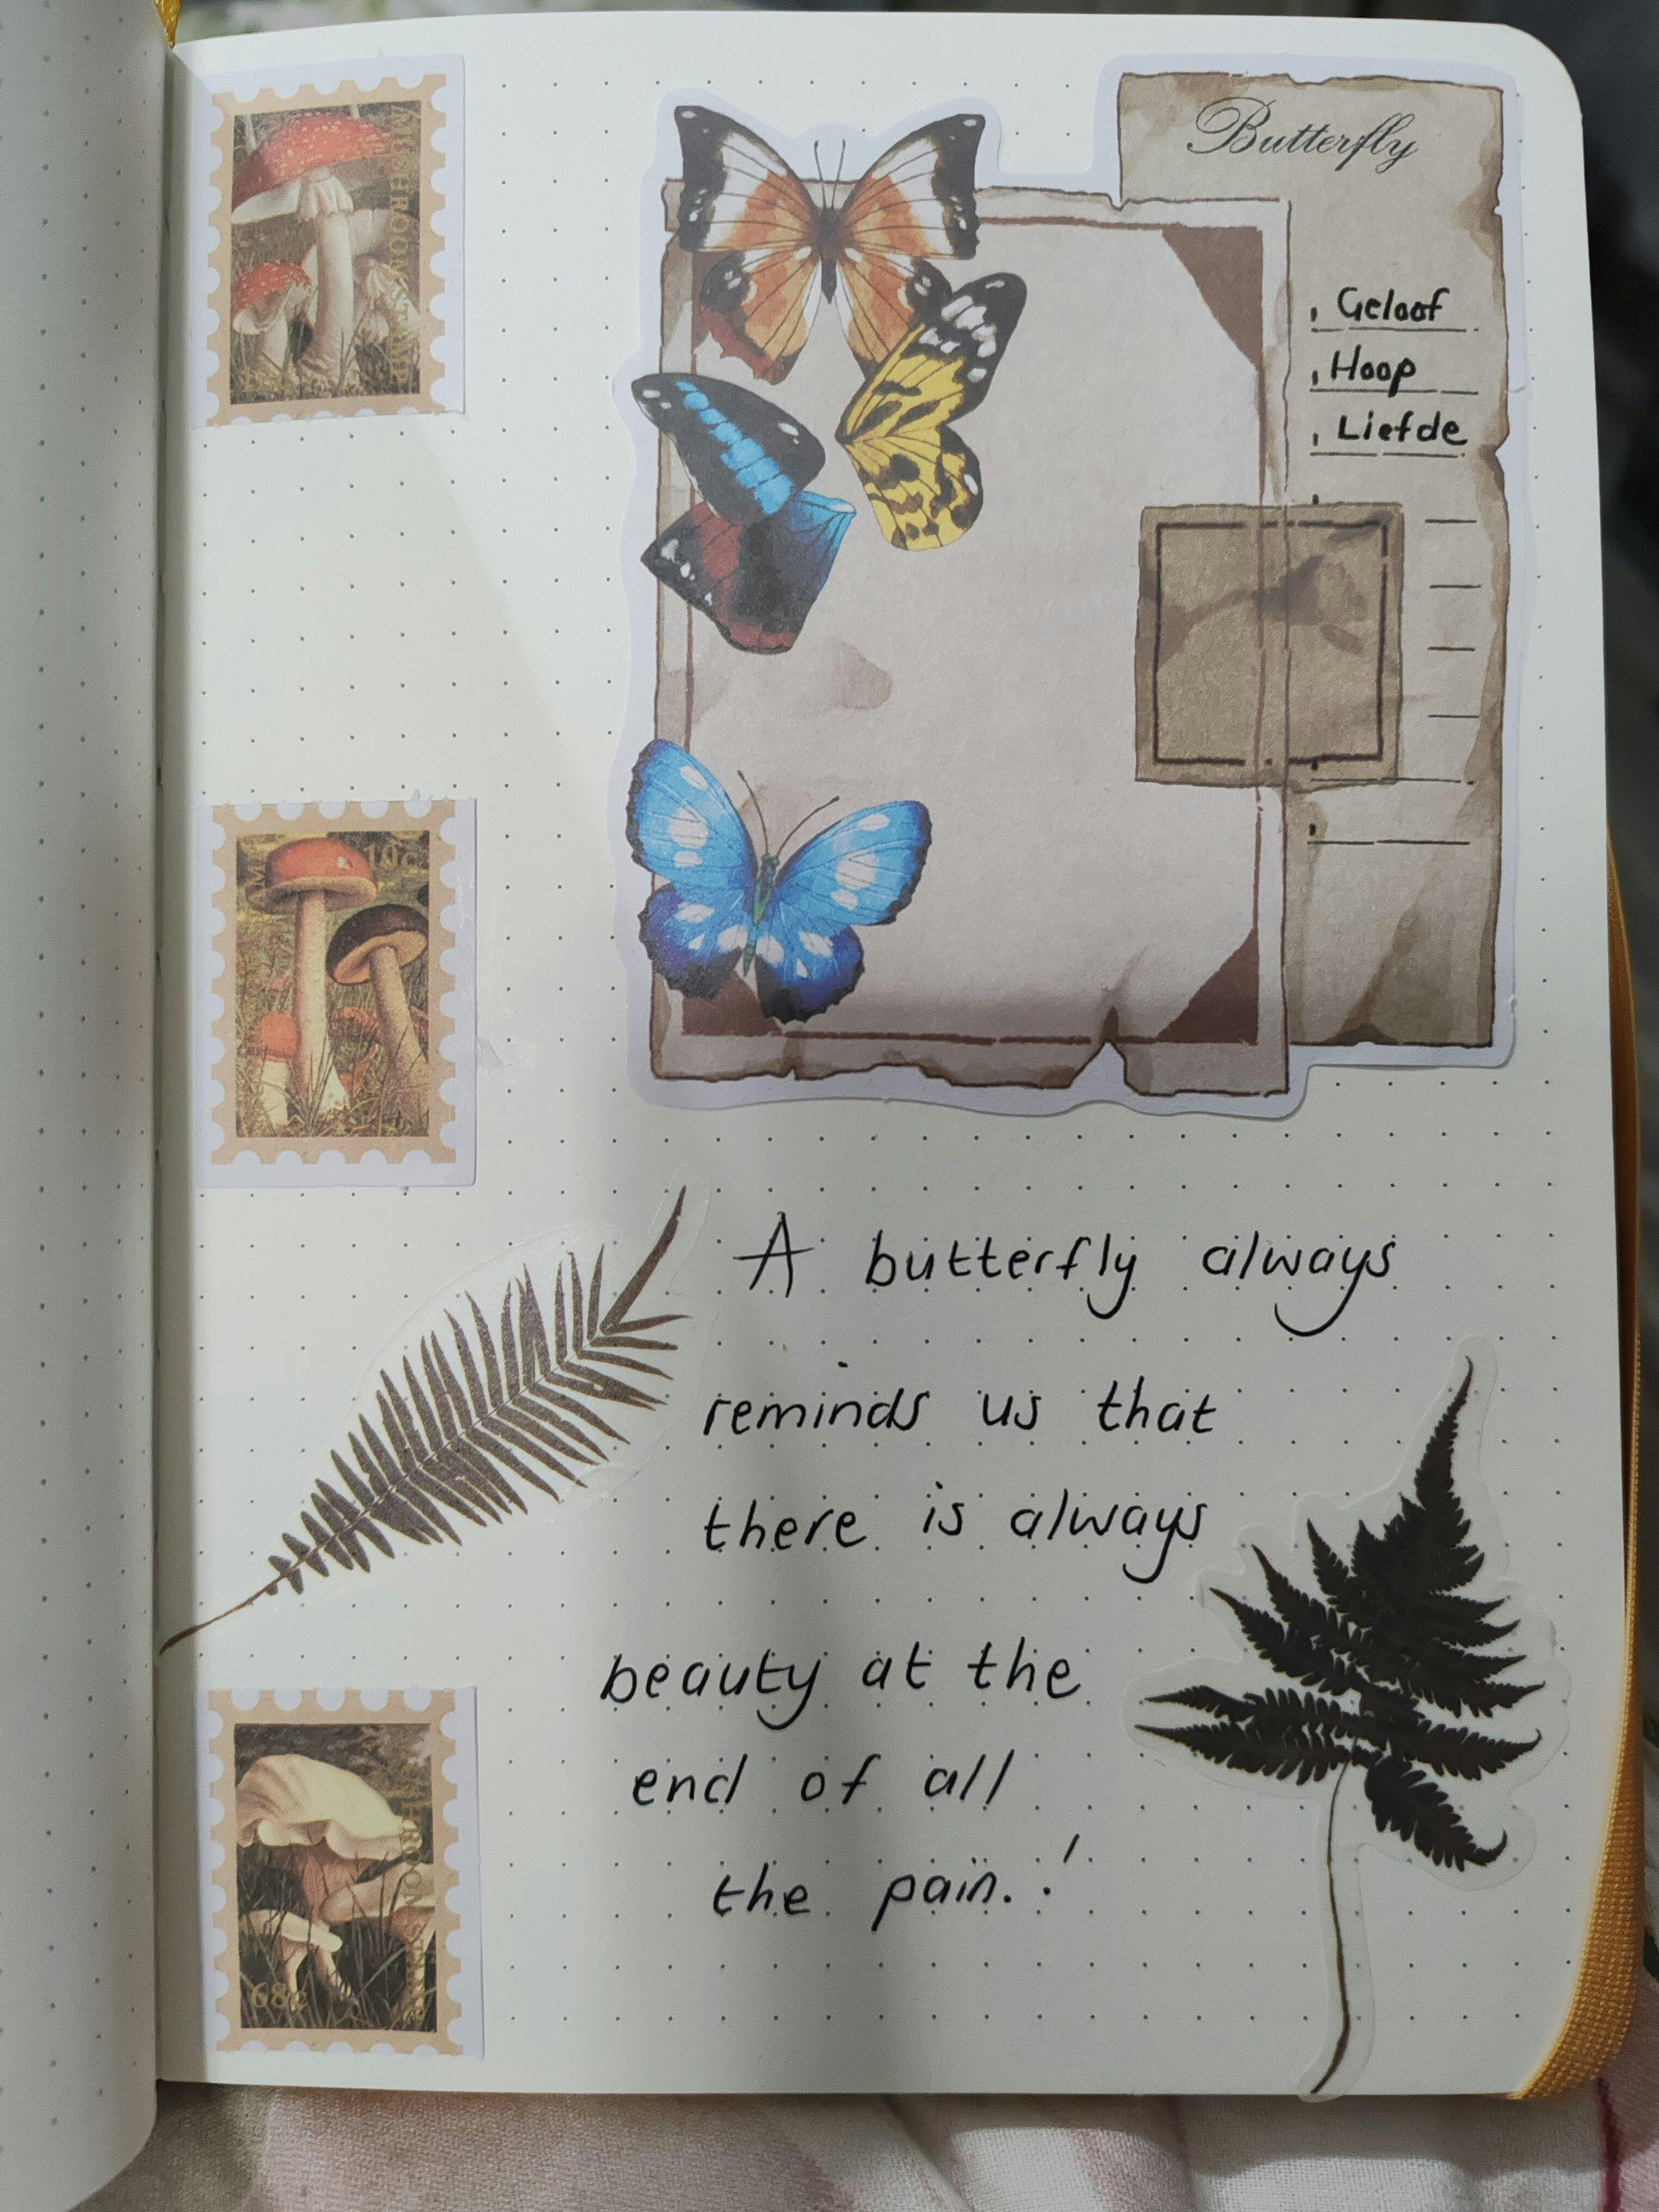 MUSHROOM STAMP
Butterfly
Geloof
Hoop
Liefde
10c
A butterfly always
reminds us that
there is always
beauty at the
end of all
the pain. !
68c